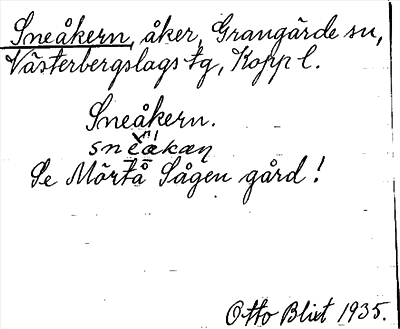 Sneåkern, åker, Grangärde sn,
Västerbergslags tg, Kopp l.
Sneåkern.
Se Mörtå Sågen gård!
Otto Blixt 1935.